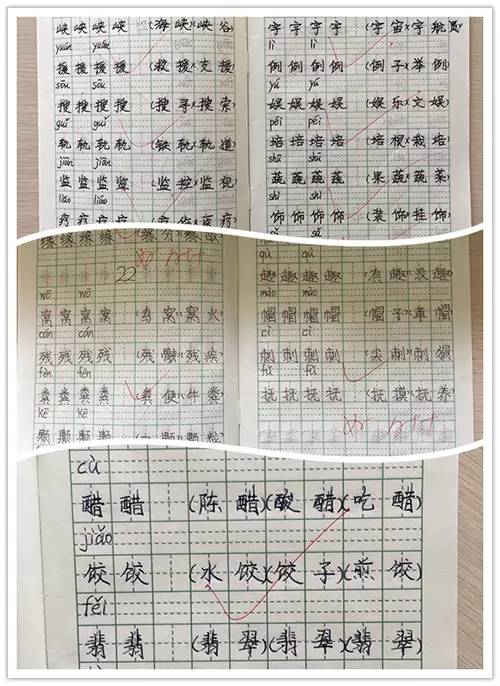 峡 峡 峡 峡 (海 峡)(峡 谷)
yuán yuán
援 援 援 援 (救 援)(支 援)
sōu sōu
搜 搜 搜 搜 (搜 寻)(搜 索)
guǐ guǐ
轨 轨 轨 轨 (铁 轨)(轨 道)
jiān jiān
监 监 监 监 (监 控)(监 视)
liáo liáo
疗 疗 疗 疗
宇 宇 宇 宇 (宇 宙)(宇 航员)
lì lì
例 例 例 例 (例 子)(举 例)
yú yú
娱 娱 娱 娱 (娱 乐)(文 娱)
péi péi
培 培 培 培 (培 根)(栽 培)
shū shū
蔬 蔬 蔬 蔬 (果 蔬)(蔬 菜)
shì shì
饰 饰 饰 饰 (装 饰)(挂 饰)
缘 缘 缘 缘
22
wō wō
窝 窝 窝 窝
cán cán
残 残 残 残
fèn fèn
粪 粪 粪 粪 (粪 便)(牛 粪)
kē kē
颗 颗 颗 颗
qù qù
趣 趣 趣 趣 (有 趣)(没 趣)
mào mào
帽 帽 帽 帽 (帽 子)(草 帽)
cì cì
刺 刺 刺 刺 (尖 刺)(刺 猬)
fǔ fǔ
抚 抚 抚 抚 (抚 摸)(抚 养)
cù
醋 醋 (陈 醋)(酸 醋)(吃 醋)
jiǎo
饺 饺 (水 饺)(饺 子)(煎 饺)
fěi
翡 翡 (翡 翠)(翡 翠)(翡 翠)